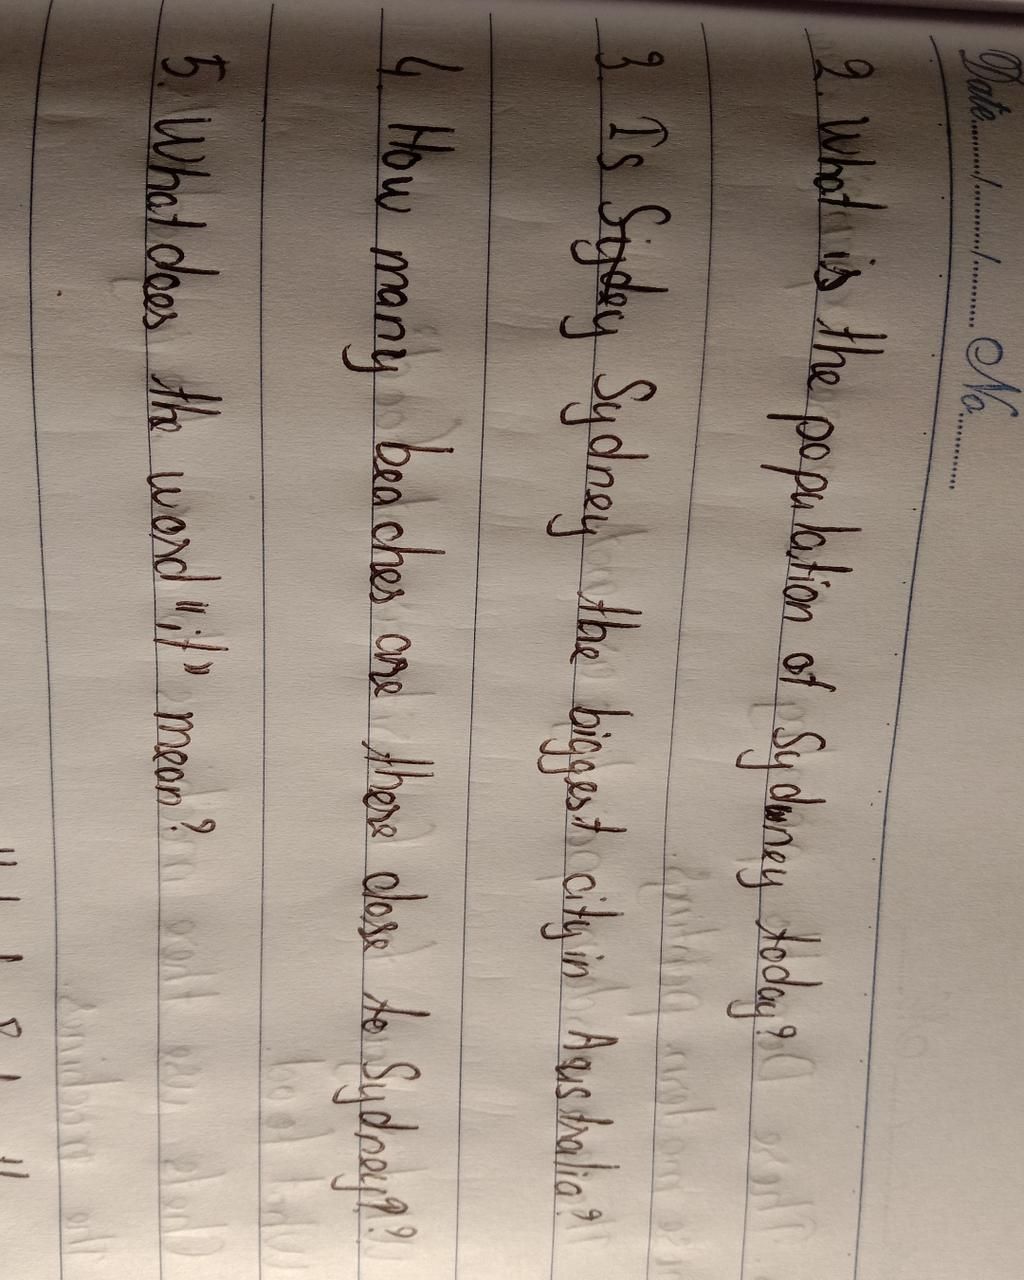 Date......./......./....... No...........
2. What is the population of Sydney today?
3 Is Sydey Sydney the biggest city in Australia?
4. How many beaches are there close to Sydney??
5. What does the word "it" mean?